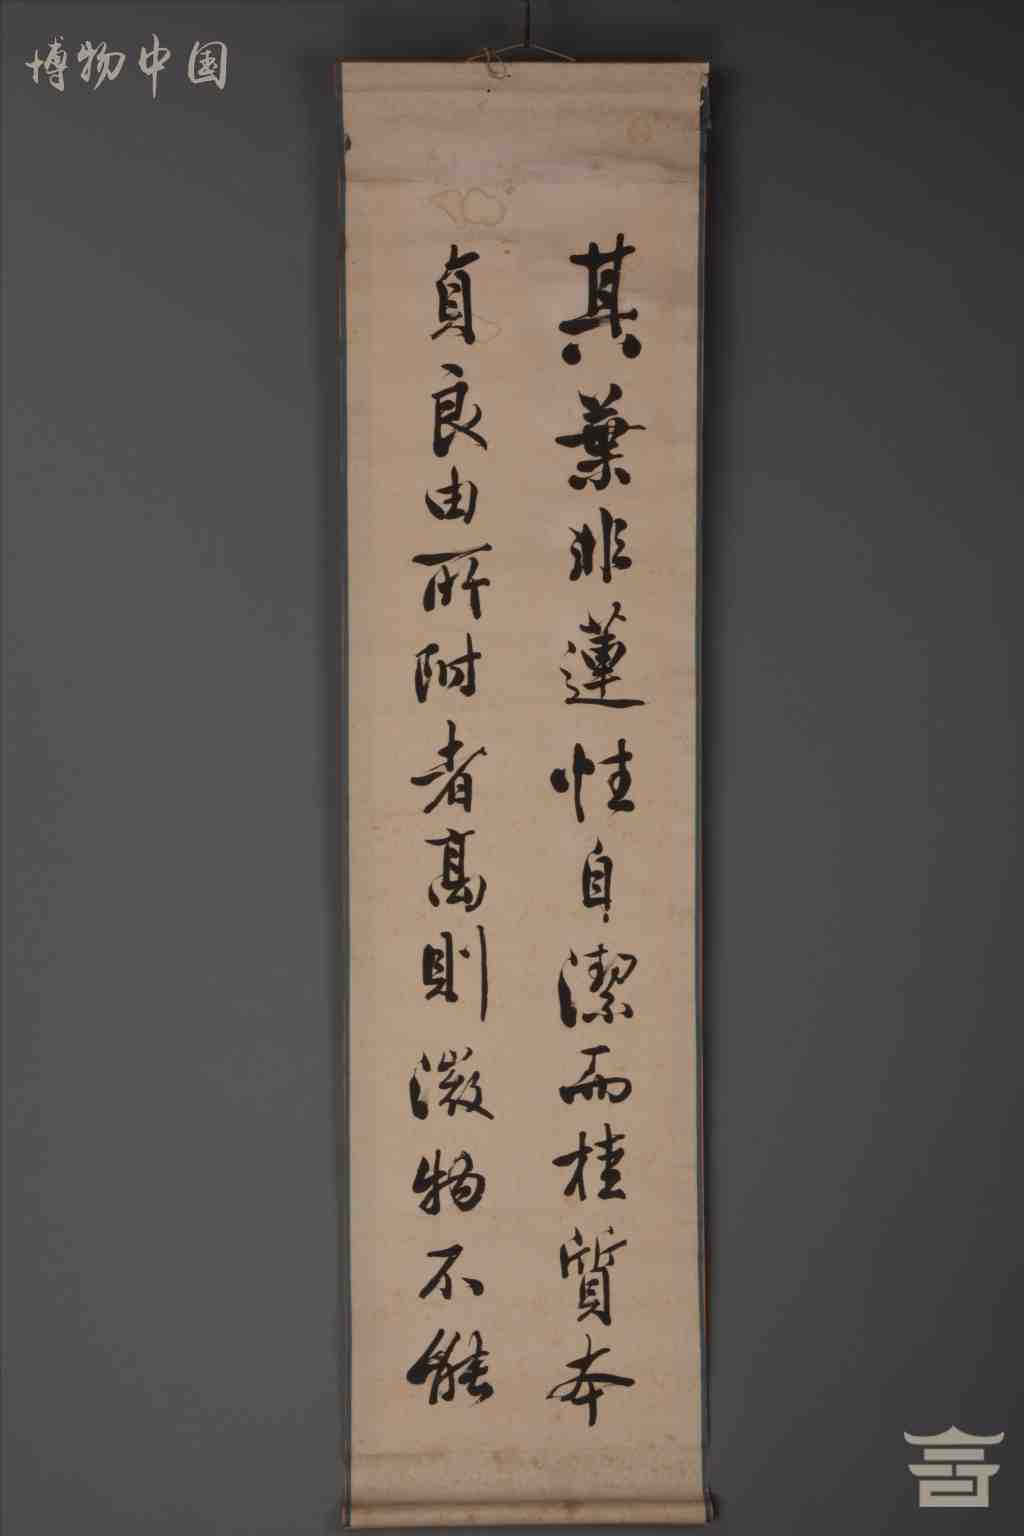 博物中国
其葉非蓮性自潔而桂質本
貞良由所附者高則微物不能